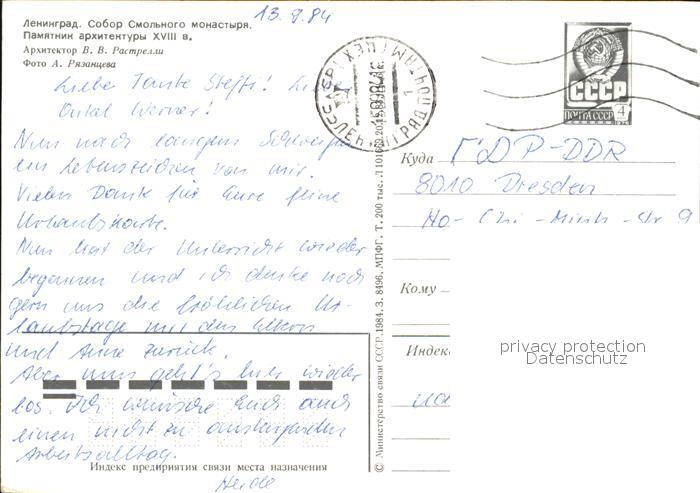 13.9.84
Ленинград. Собор Смольного монастыря.
Памятник архитектуры XVIII в.
Архитектор В. В. Растрелли
Фото А. Рязанцева
Liebe Tante Steffi! Lieber
Onkel Werner!
Nun nach langem Schweigen
ein Lebenszeichen von mir.
Vielen Dank für Eure feine
Urlaubskarte.
Nun hat der Unterricht wieder
begonnen und ich denke noch
gern an die fröhlichen Ur-
laubstage mit den Eltern
und Anne zurück.
Aber nun geht's hier wieder
los. Ich wünsche Euch auch
einen nicht zu anstrengenden
Arbeitsalltag.
Heide
Индекс предприятия связи места назначения
© Министерство связи СССР. 1984. З. 8496. МПФГ. Т. 200 тыс.
СССР
ПОЧТА СССР
4
ЛЕНИНГРАД ПОЧТАМТ
Куда ГДР-DDR
8010 Dresden
Ho-Chi-Minh-Str 9
Кому
Индекс
privacy protection
Datenschutz